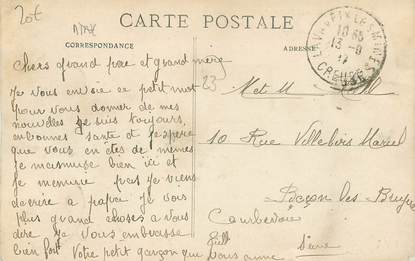 CARTE POSTALE
CORRESPONDANCE
ADRESSE
LAVAVEIX LES MINES
CREUSE
23
Chers grand père et grand mère
Je vous envoie ce petit mot
pour vous donner de mes
nouvelles je suis toujours
en bonnes santé et j'espère
que vous en êtes de mêmes
je m'amuse bien ici et
je m'ennuie pas je viens
d'ecrire a papa je vois
plus grand choses a vous
dire Je vous embrasse
bien fort Votre petit garçon qui vous aime
M et M
10 Rue Villebois Mareuil
Bécon les Bruyères
Courbevoie
Seine